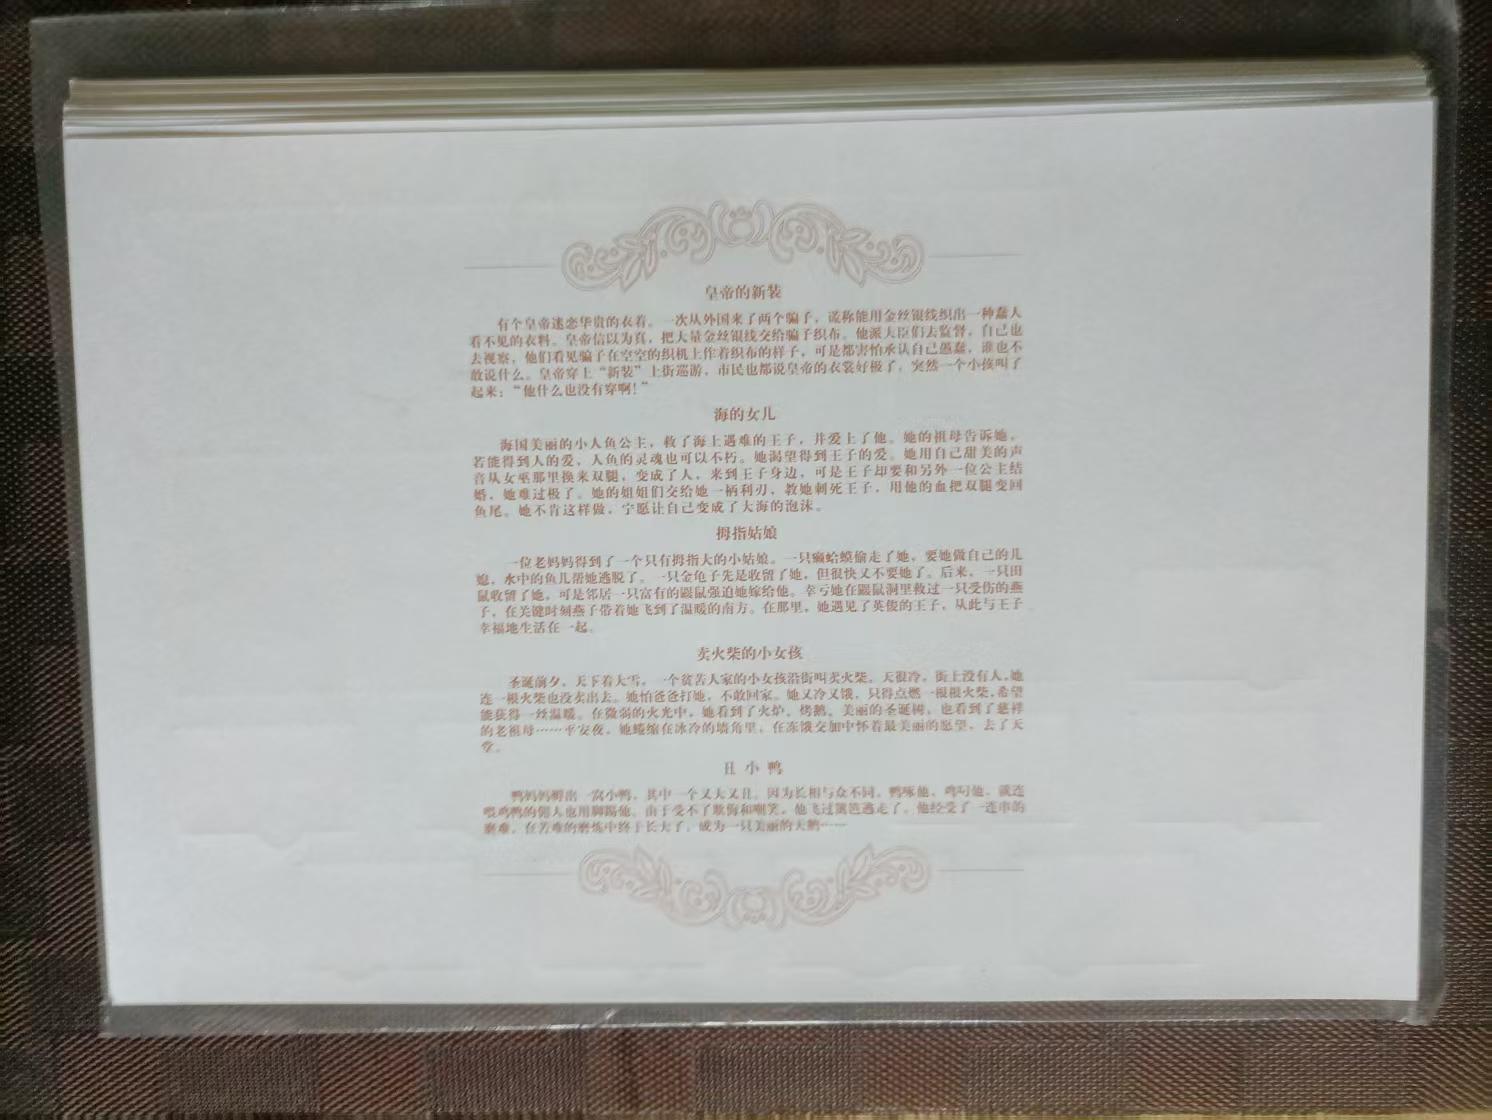 皇帝的新装
有个皇帝迷恋华贵的衣着。一次从外国来了两个骗子，谎称能用金丝银线织出一种蠢人
看不见的衣料。皇帝信以为真，把大量金丝银线交给骗子织布。他派大臣们去监督，自己也
去视察，他们看见骗子在空空的织机上作着织布的样子，可是都害怕承认自己愚蠢，谁也不
敢说什么。皇帝穿上“新装”上街巡游，市民也都说皇帝的衣裳好极了，突然一个小孩叫了
起来：“他什么也没有穿啊！”
海的女儿
海国美丽的小人鱼公主，救了海上遇难的王子，并爱上了他。她的祖母告诉她，
若能得到人的爱，人鱼的灵魂也可以不朽。她渴望得到王子的爱。她用自己甜美的声
音从女巫那里换来双腿，变成了人，来到王子身边，可是王子却要和另外一位公主结
婚，她难过极了。她的姐姐们交给她一柄利刃，教她刺死王子，用他的血把双腿变回
鱼尾。她不肯这样做，宁愿让自己变成了大海的泡沫。
拇指姑娘
一位老妈妈得到了一个只有拇指大的小姑娘。一只癞蛤蟆偷走了她，要她做自己的儿
媳，水中的鱼儿帮她逃脱了。一只金龟子先是收留了她，但很快又不要她了。后来，一只田
鼠收留了她，可是邻居一只富有的鼹鼠强迫她嫁给他。幸亏她在鼹鼠洞里救过一只受伤的燕
子，在关键时刻燕子带着她飞到了温暖的南方。在那里，她遇见了英俊的王子，从此与王子
幸福地生活在一起。
卖火柴的小女孩
圣诞前夕，天下着大雪，一个贫苦人家的小女孩沿街叫卖火柴。天很冷，街上没有人，她
连一根火柴也没卖出去。她怕爸爸打她，不敢回家。她又冷又饿，只得点燃一根根火柴，希望
能获得一丝温暖。在微弱的火光中，她看到了火炉、烤鹅、美丽的圣诞树，也看到了慈祥
的老祖母……平安夜，她蜷缩在冰冷的墙角里，在冻饿交加中怀着最美丽的愿望，去了天
堂。
丑小鸭
鸭妈妈孵出一窝小鸭，其中一个又大又丑。因为长相与众不同，鸭啄他，鸡叼他，就连
喂鸡鸭的佣人也用脚踢他。由于受不了欺侮和嘲笑，他飞过篱笆逃走了。他经受了一连串的
磨难，在苦难的磨炼中终于长大了，成为一只美丽的天鹅……